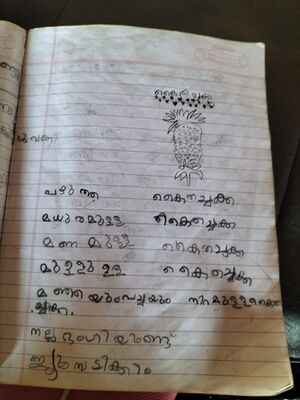 കൈതച്ചക്ക
പഴുത്ത കൈതച്ചക്ക
മധുരമുള്ള കൈതച്ചക്ക
മണമുള്ള കൈതച്ചക്ക
മുള്ളുള്ള കൈതച്ചക്ക
മഞ്ഞയുംപച്ചയും നിറമുള്ള
ച്ചക്ക.
നല്ല ഭംഗിയുണ്ട്
ജ്യൂസടിക്കാം